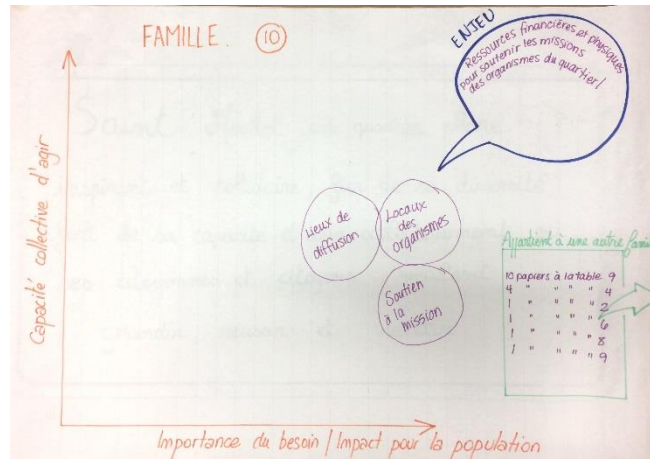 FAMILLE. 10
ENJEU
Ressources financières et physiques
pour soutenir les missions
des organismes du quartier!
Capacité collective d'agir
Lieux de
diffusion
Locaux
des
organismes
Soutien
à la
mission
Appartient à une autre
10 papiers à la table 9
4 " " " " 4
1 " " " " 2
1 " " " " 6
1 " " " " 8
1 " " " " 9
Importance du besoin / Impact pour la population